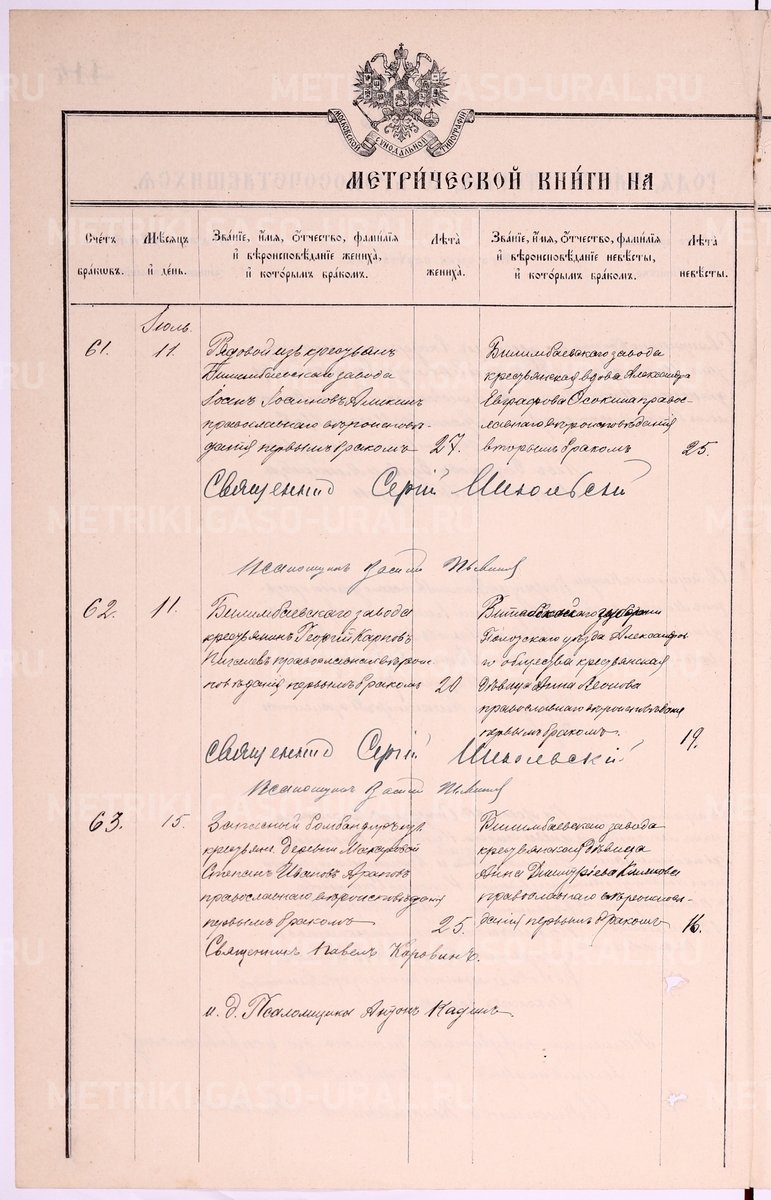 МОСКОВСКОЙ СѴНОДАЛЬНОЙ ТИПОГРАФІИ
МЕТРИ́ЧЕСКОЙ КНИ́ГИ НА
Сче́тъ бра́кѡвъ.
Мѣ́сяцъ и҆ де́нь.
Зва́нїе, и҆́мя, ѻ҆́тчество, фамѵ́лїя и҆ вѣроисповѣ́данїе жениха̀, и҆ кото́рымъ бра́комъ.
Лѣ́та жениха̀.
Зва́нїе, и҆́мя, ѻ҆́тчество, фамѵ́лїя и҆ вѣроисповѣ́данїе невѣ́сты, и҆ кото́рымъ бра́комъ.
Лѣ́та невѣ́сты.
Іюль
61.
11.
Рядовой изъ крестьянъ
Билимбаевскаго завода
Іоанъ Іоанновъ
православнаго вѣроисповѣ-
данія первымъ бракомъ
27.
Билимбаевскаго завода
крестьянская вдова Александра
Осокина правос-
лавнаго вѣроисповѣданія
вторымъ бракомъ
25.
Священникъ Сергій
Псаломщикъ
62.
11.
Билимбаевскаго завода
крестьянинъ Георгій Карповъ
православнаго вѣроис-
повѣданія первымъ бракомъ
20
Витебской губерніи
уѣзда
общества крестьянская
дѣвица Анна Леонова
православнаго вѣроисповѣданія
первымъ бракомъ.
19.
Священникъ Сергій
Псаломщикъ
63.
15.
Запасный бомбардиръ изъ
крестьянъ деревни Макаровой
Степанъ Ивановъ Араповъ
православнаго вѣроисповѣданія
первымъ бракомъ
25.
Билимбаевскаго завода
крестьянская дѣвица
Анна Димитріева Климова
православнаго вѣроисповѣ-
данія первымъ бракомъ
16.
Священникъ Павелъ Коровинъ.
и. д. Псаломщика Антонъ
METRIKI.GASO-URAL.RU